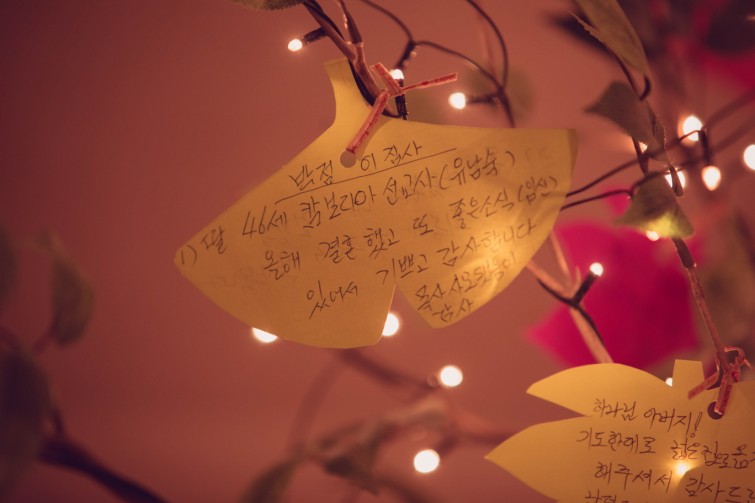 박점이 집사
1) 딸 46세 캄보디아 선교사(유남숙)
올해 결혼했고 또 좋은소식(임신)
있어서 기쁘고 감사합니다
감사
하나님 아버지!
기도한대로
해주셔서 감사드